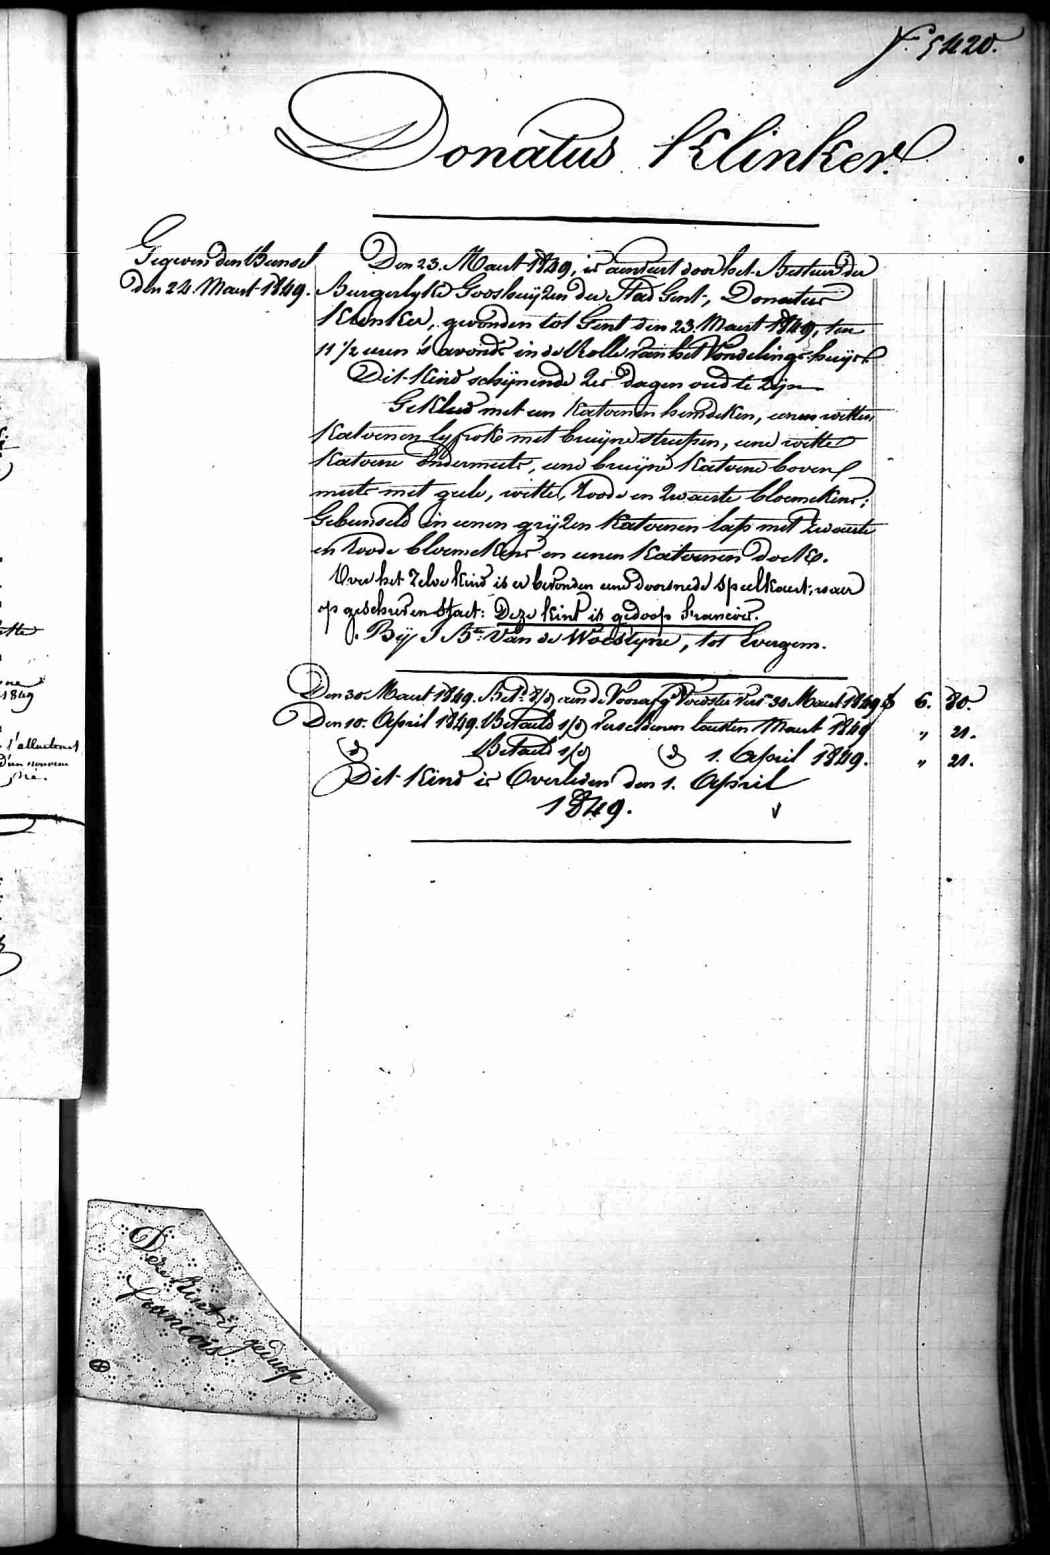 f.º 5420.
Donatus Klinker.
Gegeven den Bunsel
den 24. Maart 1849.
Den 23. Maart 1849, is aenveert door het Bestuer der
Burgerlyke Godshuyzen der Stad Gent, Donatus
Klinker, gevonden tot Gent den 23. Maart 1849, ten
11 1/2 uren 's avonds in de Rolle van het Vondelings-huys.
Dit kind schijnende 2 dagen oud te zijn
Gekleed met een katoenen hemdeken, eenen witten
katoenen lyfrok met bruyne streepen, eene witte
katoene ondermuts, eene bruyne katoene boven
muts met geele, witte, roode en zwarte bloemekens;
Gebunseld in eenen gryzen katoenen lap met zwarte
en roode bloemekens en eenen katoenen doek.
Over het zelve kind is er bevonden eene doorsnede speelkaart, waer
op geschreven staet: Deze kint is gedoop Francois.
Bij J. Bte Van de Woestyne, tot Evergem.
Den 30. Maart 1849. Bet. aen de Voorzg. 30 Maart 1849 6. 80.
Den 10. April 1849. Betaeld Maart 1849 " 21.
(d) Betaeld (d) 1. April 1849. " 21.
Dit kind is Overleden den 1. April
1849.
Deze kint is gedoop
francois
l'allaitement
d'un nouveau
1849